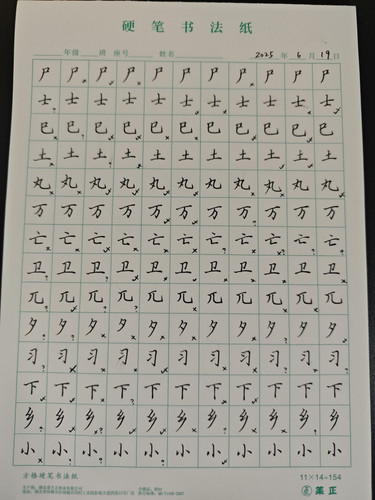 硬笔书法纸
年级 班 座号 姓名 2025 年 6 月 19 日
尸 尸 尸 尸 尸 尸 尸 尸 尸 尸 尸
士 士 士 士 士 士 士 士 士 士 士
巳 巳 巳 巳 巳 巳 巳 巳 巳 巳 巳
土 土 土 土 土 土 土 土 土 土 土
丸 丸 丸 丸 丸 丸 丸 丸 丸 丸 丸
万 万 万 万 万 万 万 万 万 万 万
亡 亡 亡 亡 亡 亡 亡 亡 亡 亡 亡
卫 卫 卫 卫 卫 卫 卫 卫 卫 卫 卫
兀 兀 兀 兀 兀 兀 兀 兀 兀 兀 兀
夕 夕 夕 夕 夕 夕 夕 夕 夕 夕 夕
习 习 习 习 习 习 习 习 习 习 习
下 下 下 下 下 下 下 下 下 下 下
乡 乡 乡 乡 乡 乡 乡 乡 乡 乡 乡
小 小 小 小 小 小 小 小 小 小 小
方格硬笔书法纸 11×14=154
正